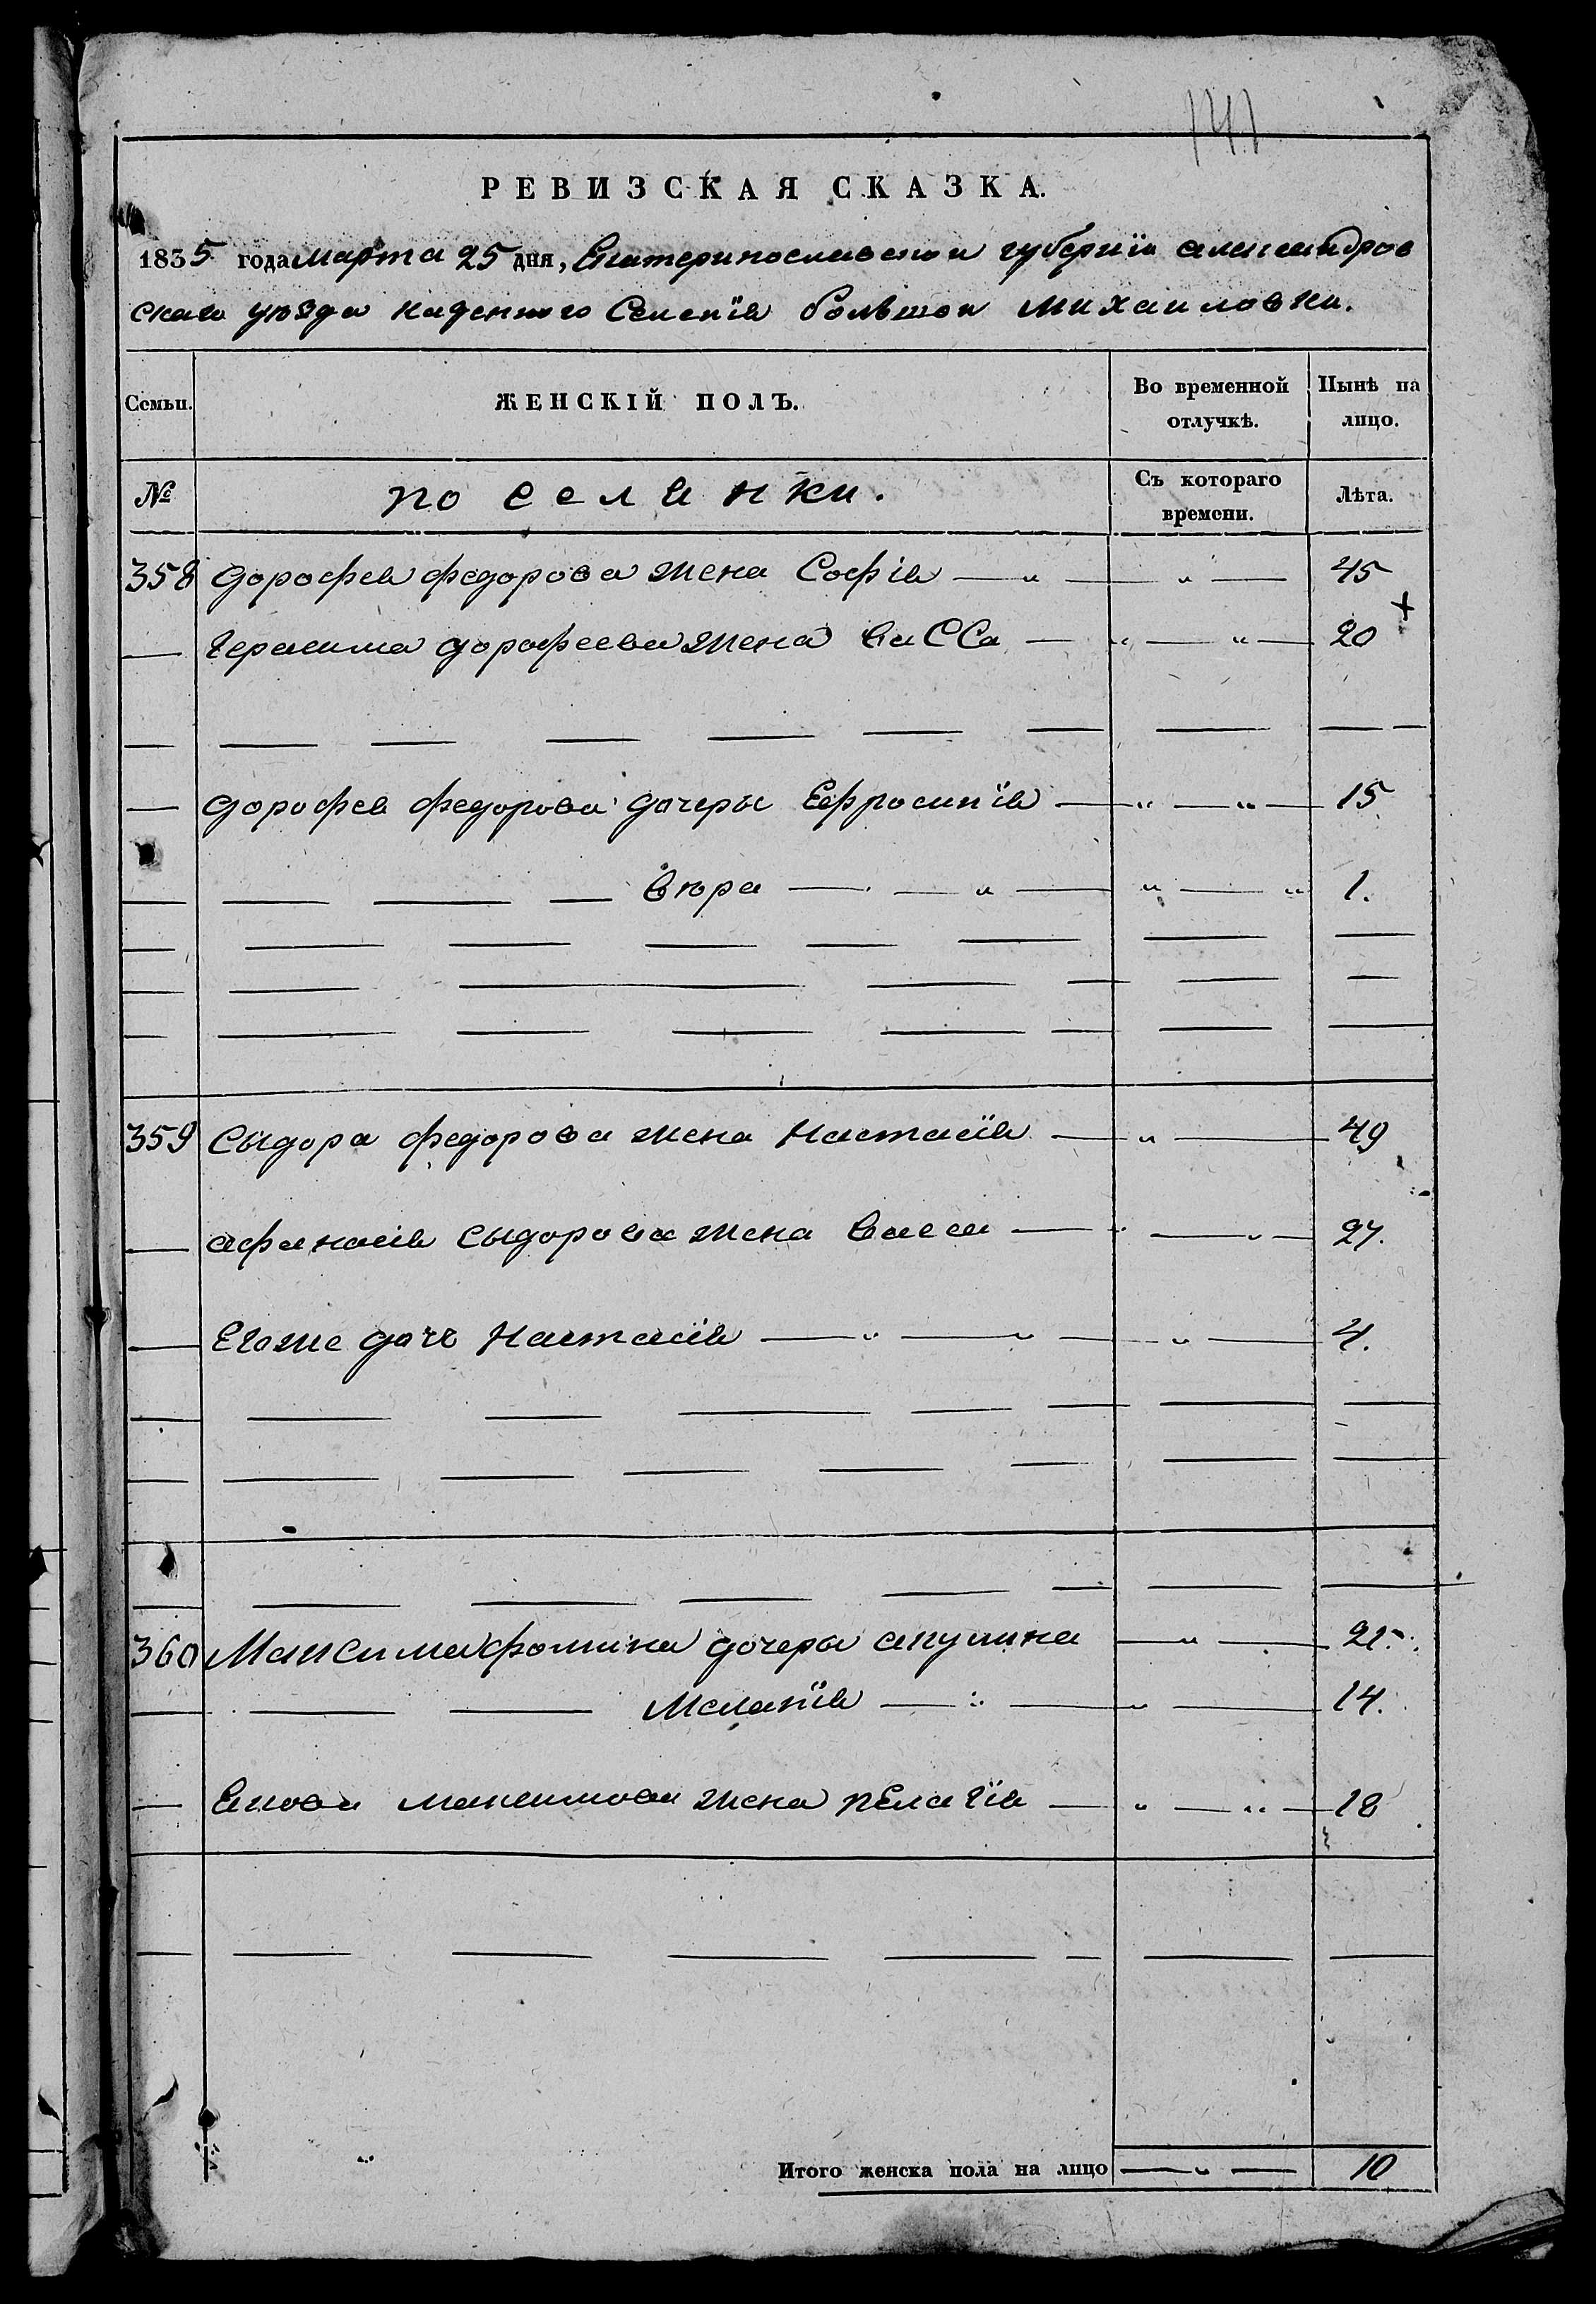 141
РЕВИЗСКАЯ СКАЗКА.
1835 года марта 25 дня, Екатеринославской губернїи александров
скаго уѣзда казенного Селенїя большой михаиловки.
Семьи. ЖЕНСКІЙ ПОЛЪ. Во временной отлучкѣ. Нынѣ на лицо.
№ поселянки. Съ котораго времени. Лѣта.
358 дорофея федорова жена Софія — „ — „ — 45
— Герасима дорофеева жена ваССа — „ — „ — 20 +
— дорофея федорова дочеры Ефросинїя — „ — „ — 15
— вѣра — „ — „ — „ 1.
359 Сыдора федорова жена Настасїя — „ — 49
— афанасія Сыдорова жена васса — „ — „ — 27.
— Егоже дочь Настасія — „ — „ — „ — 4.
360 Максима фомина дочеры акулина — „ — 21.
— Меланїя — „ — „ — 14.
— Якова максимова жена пелагїя — „ — „ — 18
Итого женска пола на лицо — „ — 10